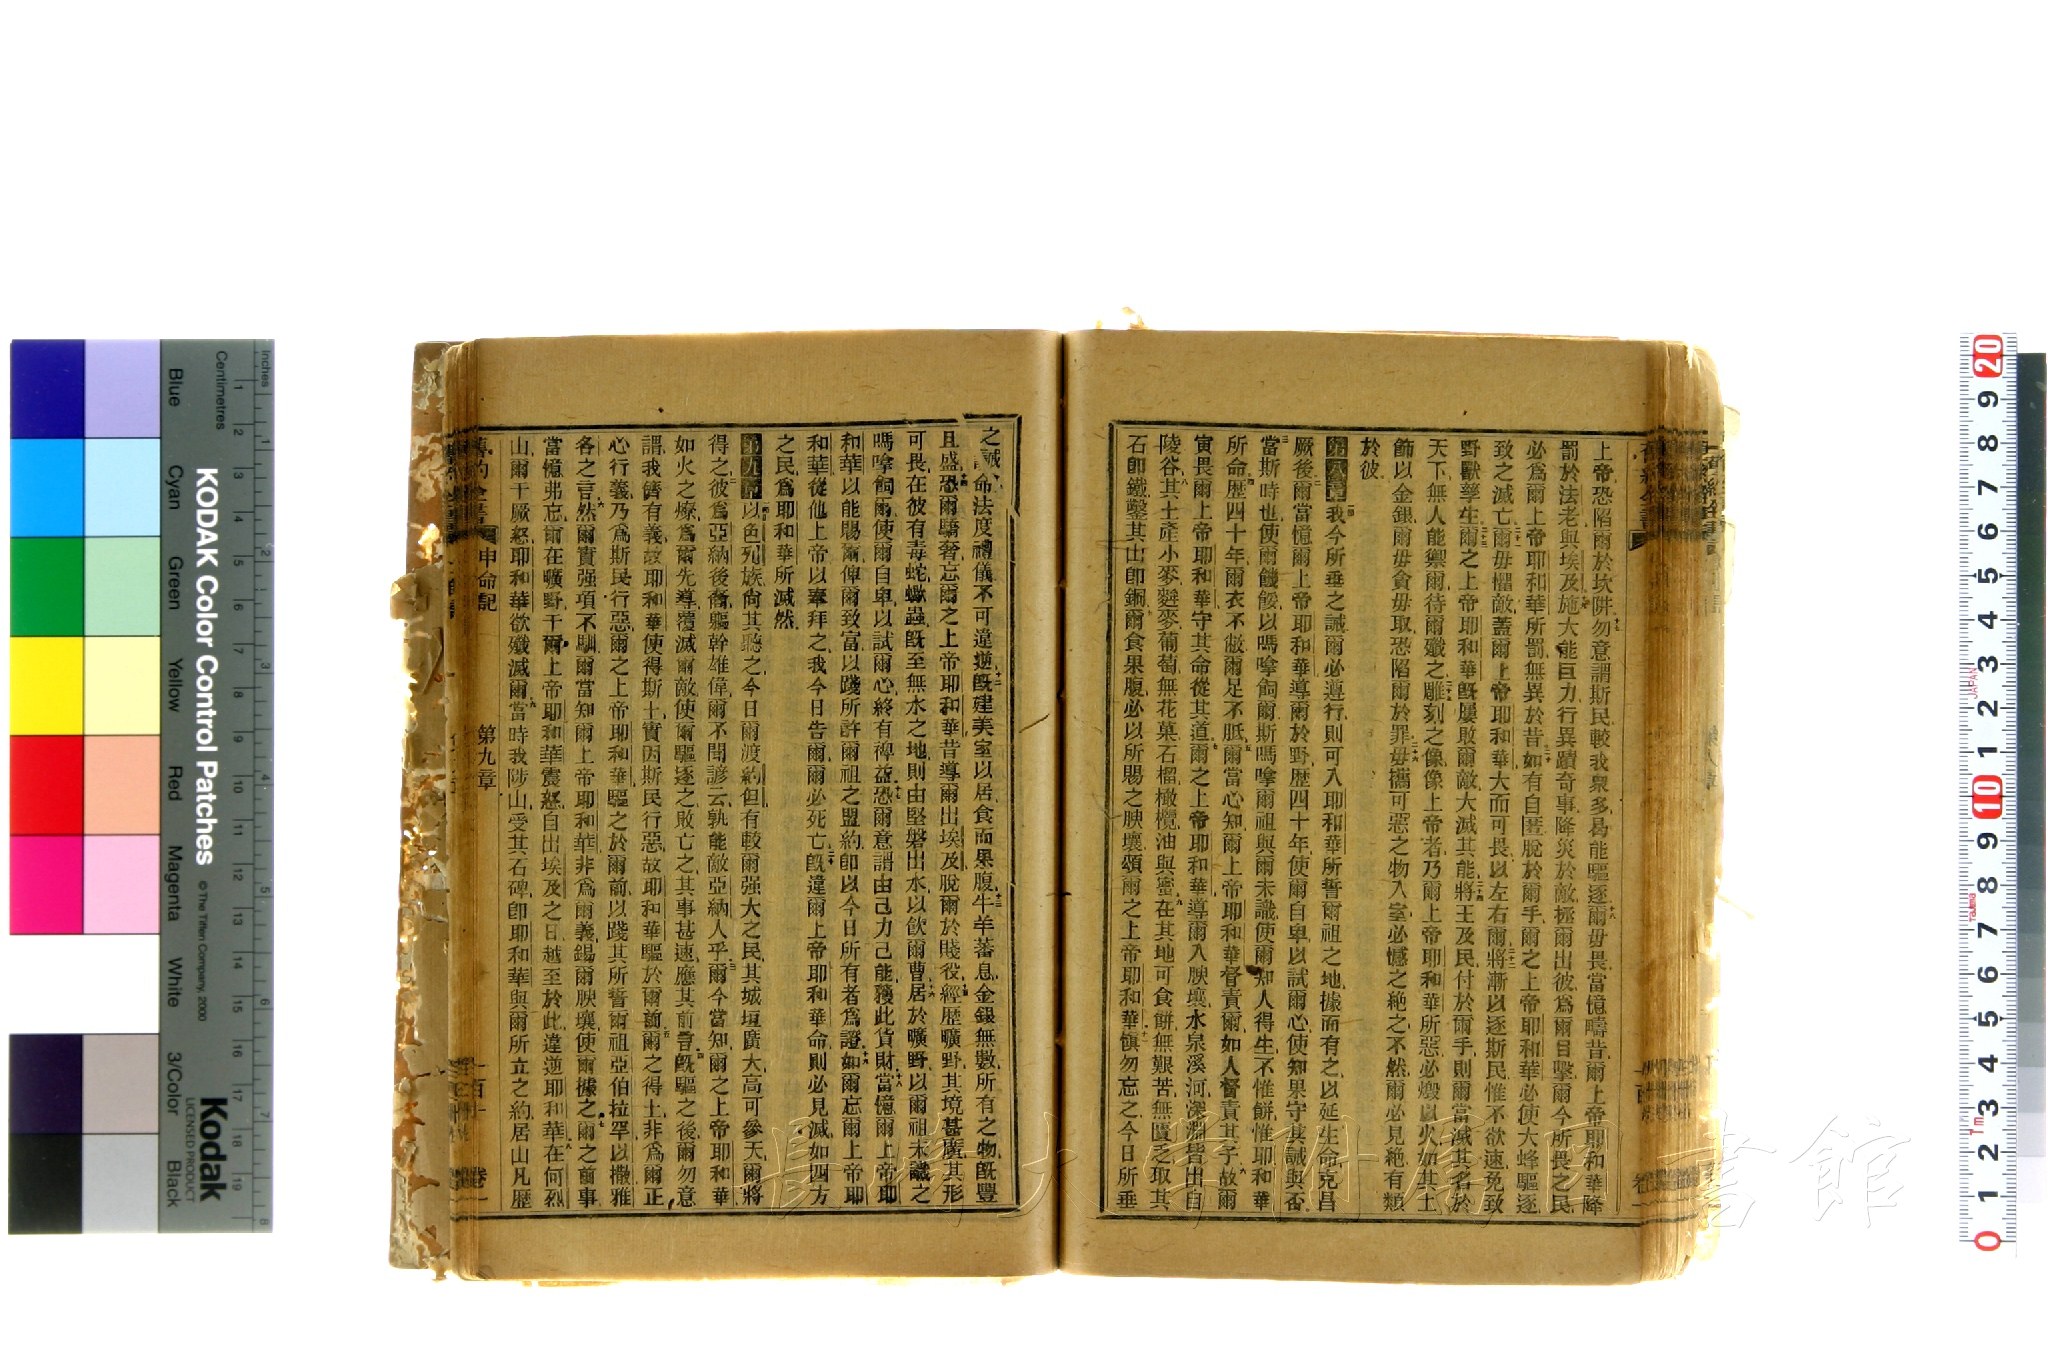 上帝恐陷爾於坎阱勿意謂斯民較我衆多曷能驅逐爾毋畏當憶疇昔爾上帝耶和華降
罰於法老與埃及施大能巨力行異蹟奇事降災於敵極爾出彼爲爾目擊爾今所畏之民
必爲爾上帝耶和華所罰無異於昔如有自匿脫於爾手爾之上帝耶和華必使大蜂驅逐
致之滅亡爾毋慴敵蓋爾上帝耶和華大而可畏以左右爾將漸以逐斯民惟不欲速免致
野獸孳生爾之上帝耶和華旣屢敗爾敵大滅其能將王及民付於爾手則爾當滅其名於
天下無人能禦爾待爾殲之雕刻之像像上帝者乃爾上帝耶和華所惡必燬以火如其上
飾以金銀爾毋貪毋取恐陷爾於罪毋攜可惡之物入室必憾之絶之不然爾必見絶有類
於彼
第八章我今所垂之誡爾必遵行則可入耶和華所誓爾祖之地據而有之以延生命克昌
厥後爾當憶爾上帝耶和華導爾於野歷四十年使爾自卑以試爾心使知果守其誡與否
當斯時也使爾饑餒以嗎嗱飼爾斯嗎嗱爾祖與爾未識使爾知人得生不惟餅惟耶和華
所命歷四十年爾衣不敝爾足不胝爾當心知爾上帝耶和華督責爾如人督責其子故爾
寅畏爾上帝耶和華守其命從其道爾之上帝耶和華導爾入腴壤水泉溪河深淵皆出自
陵谷其土產小麥麰麥葡萄無花菓石榴橄欖油與蜜在其地可食餅無艱苦無匱乏取其
石卽鐵鑿其山卽銅爾食果腹必以所賜之腴壤頌爾之上帝耶和華愼勿忘之今日所垂
之誡命法度禮儀不可違逆旣建美室以居食而果腹牛羊蕃息金銀無數所有之物旣豐
且盛恐爾驕奢忘爾之上帝耶和華昔導爾出埃及脫爾於賤役經歷曠野其境甚廣其形
可畏在彼有毒蛇蠍蟲旣至無水之地則由堅磐出水以飲爾曹居於曠野以爾祖未識之
嗎嗱飼爾使爾自卑以試爾心終有裨益恐爾意謂由己力己能獲此貨財當憶爾上帝耶
和華以能賜爾俾爾致富以踐所許爾祖之盟約卽以今日所有者爲證如爾忘爾上帝耶
和華從他上帝以奉拜之我今日告爾爾必死亡旣違爾上帝耶和華命則必見滅如四方
之民爲耶和華所滅然
第九章以色列族尚其聽之今日爾渡約但有較爾强大之民其城垣廣大高可參天爾將
得之彼爲亞納後裔軀幹雄偉爾不聞諺云孰能敵亞納人乎爾今當知爾之上帝耶和華
如火之燎爲爾先導覆滅爾敵使爾驅逐之敗亡之其事甚速應其前言旣驅之後爾勿意
謂我儕有義故耶和華使得斯土實因斯民行惡故耶和華驅於爾前爾之得土非爲爾正
心行義乃爲斯民行惡爾之上帝耶和華驅之於爾前以踐其所誓爾祖亞伯拉罕以撒雅
各之言然爾實强項不馴爾當知爾上帝耶和華非爲爾義錫爾腴壤使爾據之爾之前事
當憶弗忘爾在曠野干爾上帝耶和華震怒自出埃及之日越至於此違逆耶和華在何烈
山爾干厥怒耶和華欲殲滅爾當時我陟山受其石碑卽耶和華與爾所立之約居山凡歷
舊約全書 申命記 第九章 一百十 卷一
KODAK Color Control Patches
© The Tiffen Company, 2000
Kodak
LICENSED PRODUCT
Inches
Centimetres
Blue
Cyan
Green
Yellow
Red
Magenta
White
3/Color
Black
長崎大学附属図書館